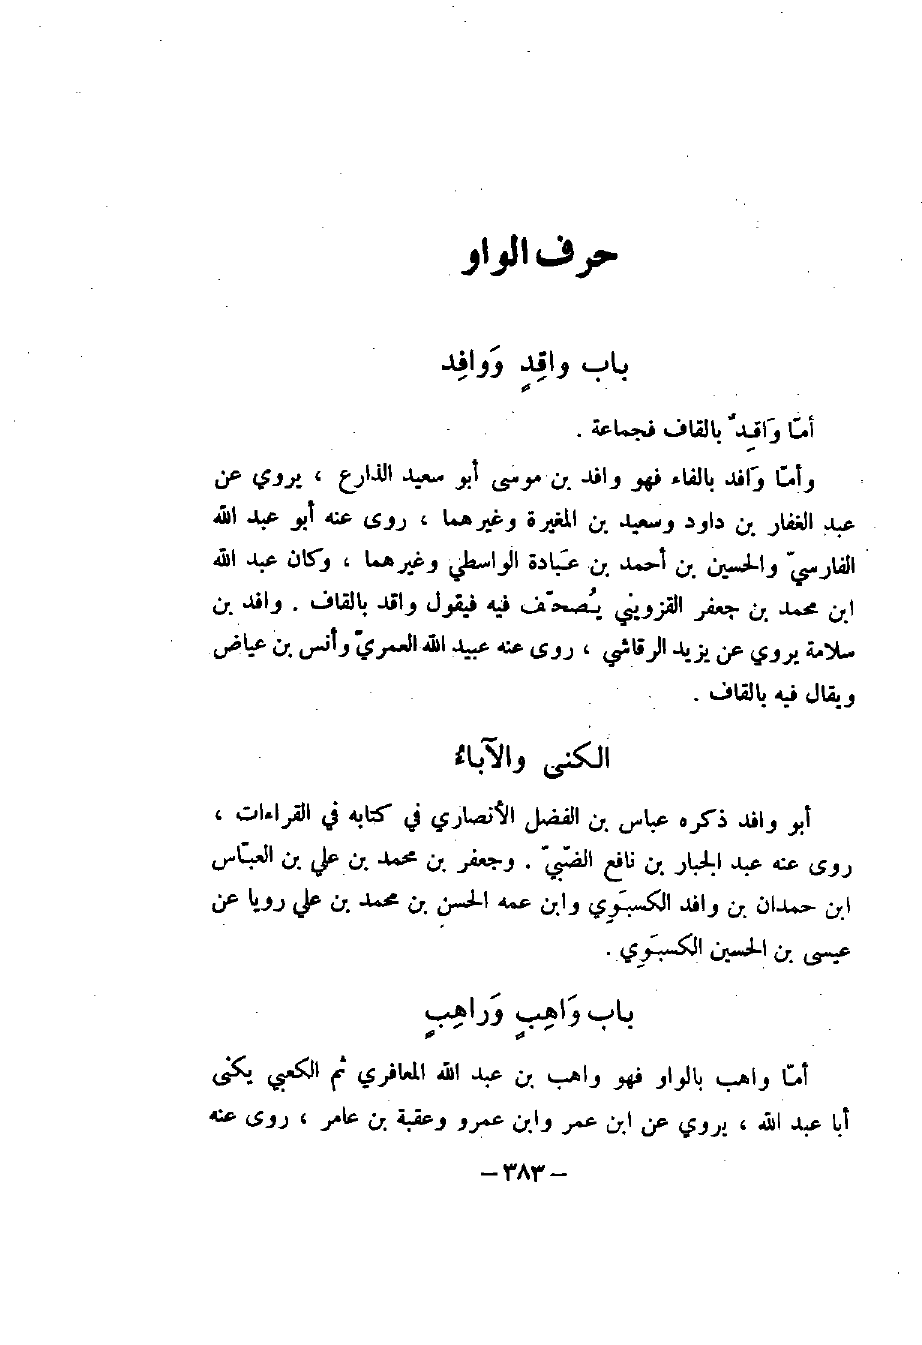 حرف الواو
باب واقِدٍ وَوافِد
أمّا وَاقِدٌ بالقاف فجماعة .
وأمّا وَافد بالفاء فهو وافد بن موسى أبو سعيد الذارع ، يروي عن
عبد الغفار بن داود وسعيد بن المغيرة وغيرهما ، روى عنه أبو عبد الله
الفارسيّ والحسين بن أحمد بن عبَادة الواسطي وغيرهما ، وكان عبد الله
ابن محمد بن جعفر القزويني يُصحّف فيه فيقول واقد بالقاف . وافد بن
سلامة يروي عن يزيد الرقاشي ، روى عنه عبيد الله العمريّ وأنس بن عياض
ويقال فيه بالقاف .
الكنى والآباء
أبو وافد ذكره عباس بن الفضل الأنصاري في كتابه في القراءات ،
روى عنه عبد الجبار بن نافع الضّبيّ . وجعفر بن محمد بن علي بن العبّاس
ابن حمدان بن وافد الكسبَوِي وابن عمه الحسن بن محمد بن علي رويا عن
عيسى بن الحسين الكسبَوِي .
باب وَاهِبٍ وَراهِبٍ
أمّا واهب بالواو فهو واهب بن عبد الله المعافري ثم الكعبي يكنى
أبا عبد الله ، يروي عن ابن عمر وابن عمرو وعقبة بن عامر ، روى عنه
– ٣٨٣ –